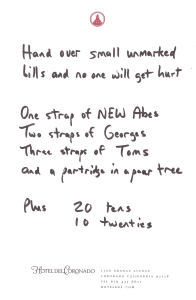 Hand over small unmarked
bills and no one will get hurt
One strap of NEW Abes
Two straps of Georges
Three straps of Toms
and a partridge in a pear tree
Plus 20 tens
10 twenties
HOTEL DEL CORONADO
1500 ORANGE AVENUE
CORONADO CALIFORNIA 92118
TEL 619 435 6611